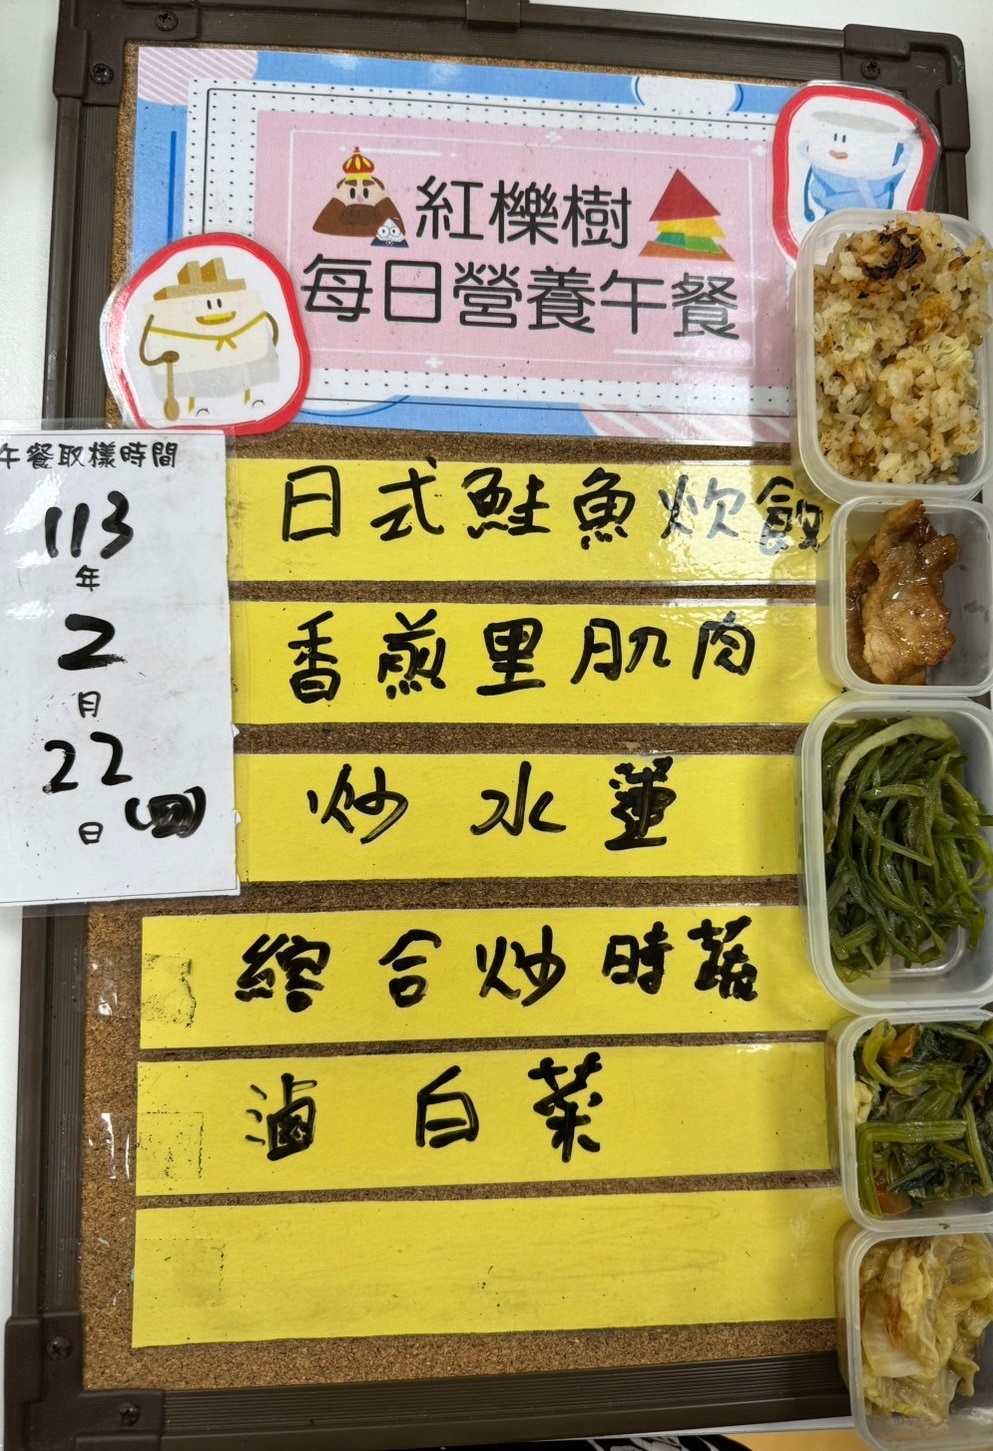 紅櫟樹
每日營養午餐
午餐取樣時間
113
年
2
月
22
(四)
日
日式鮭魚炊飯
香煎里肌肉
炒水蓮
綜合炒時蔬
滷白菜